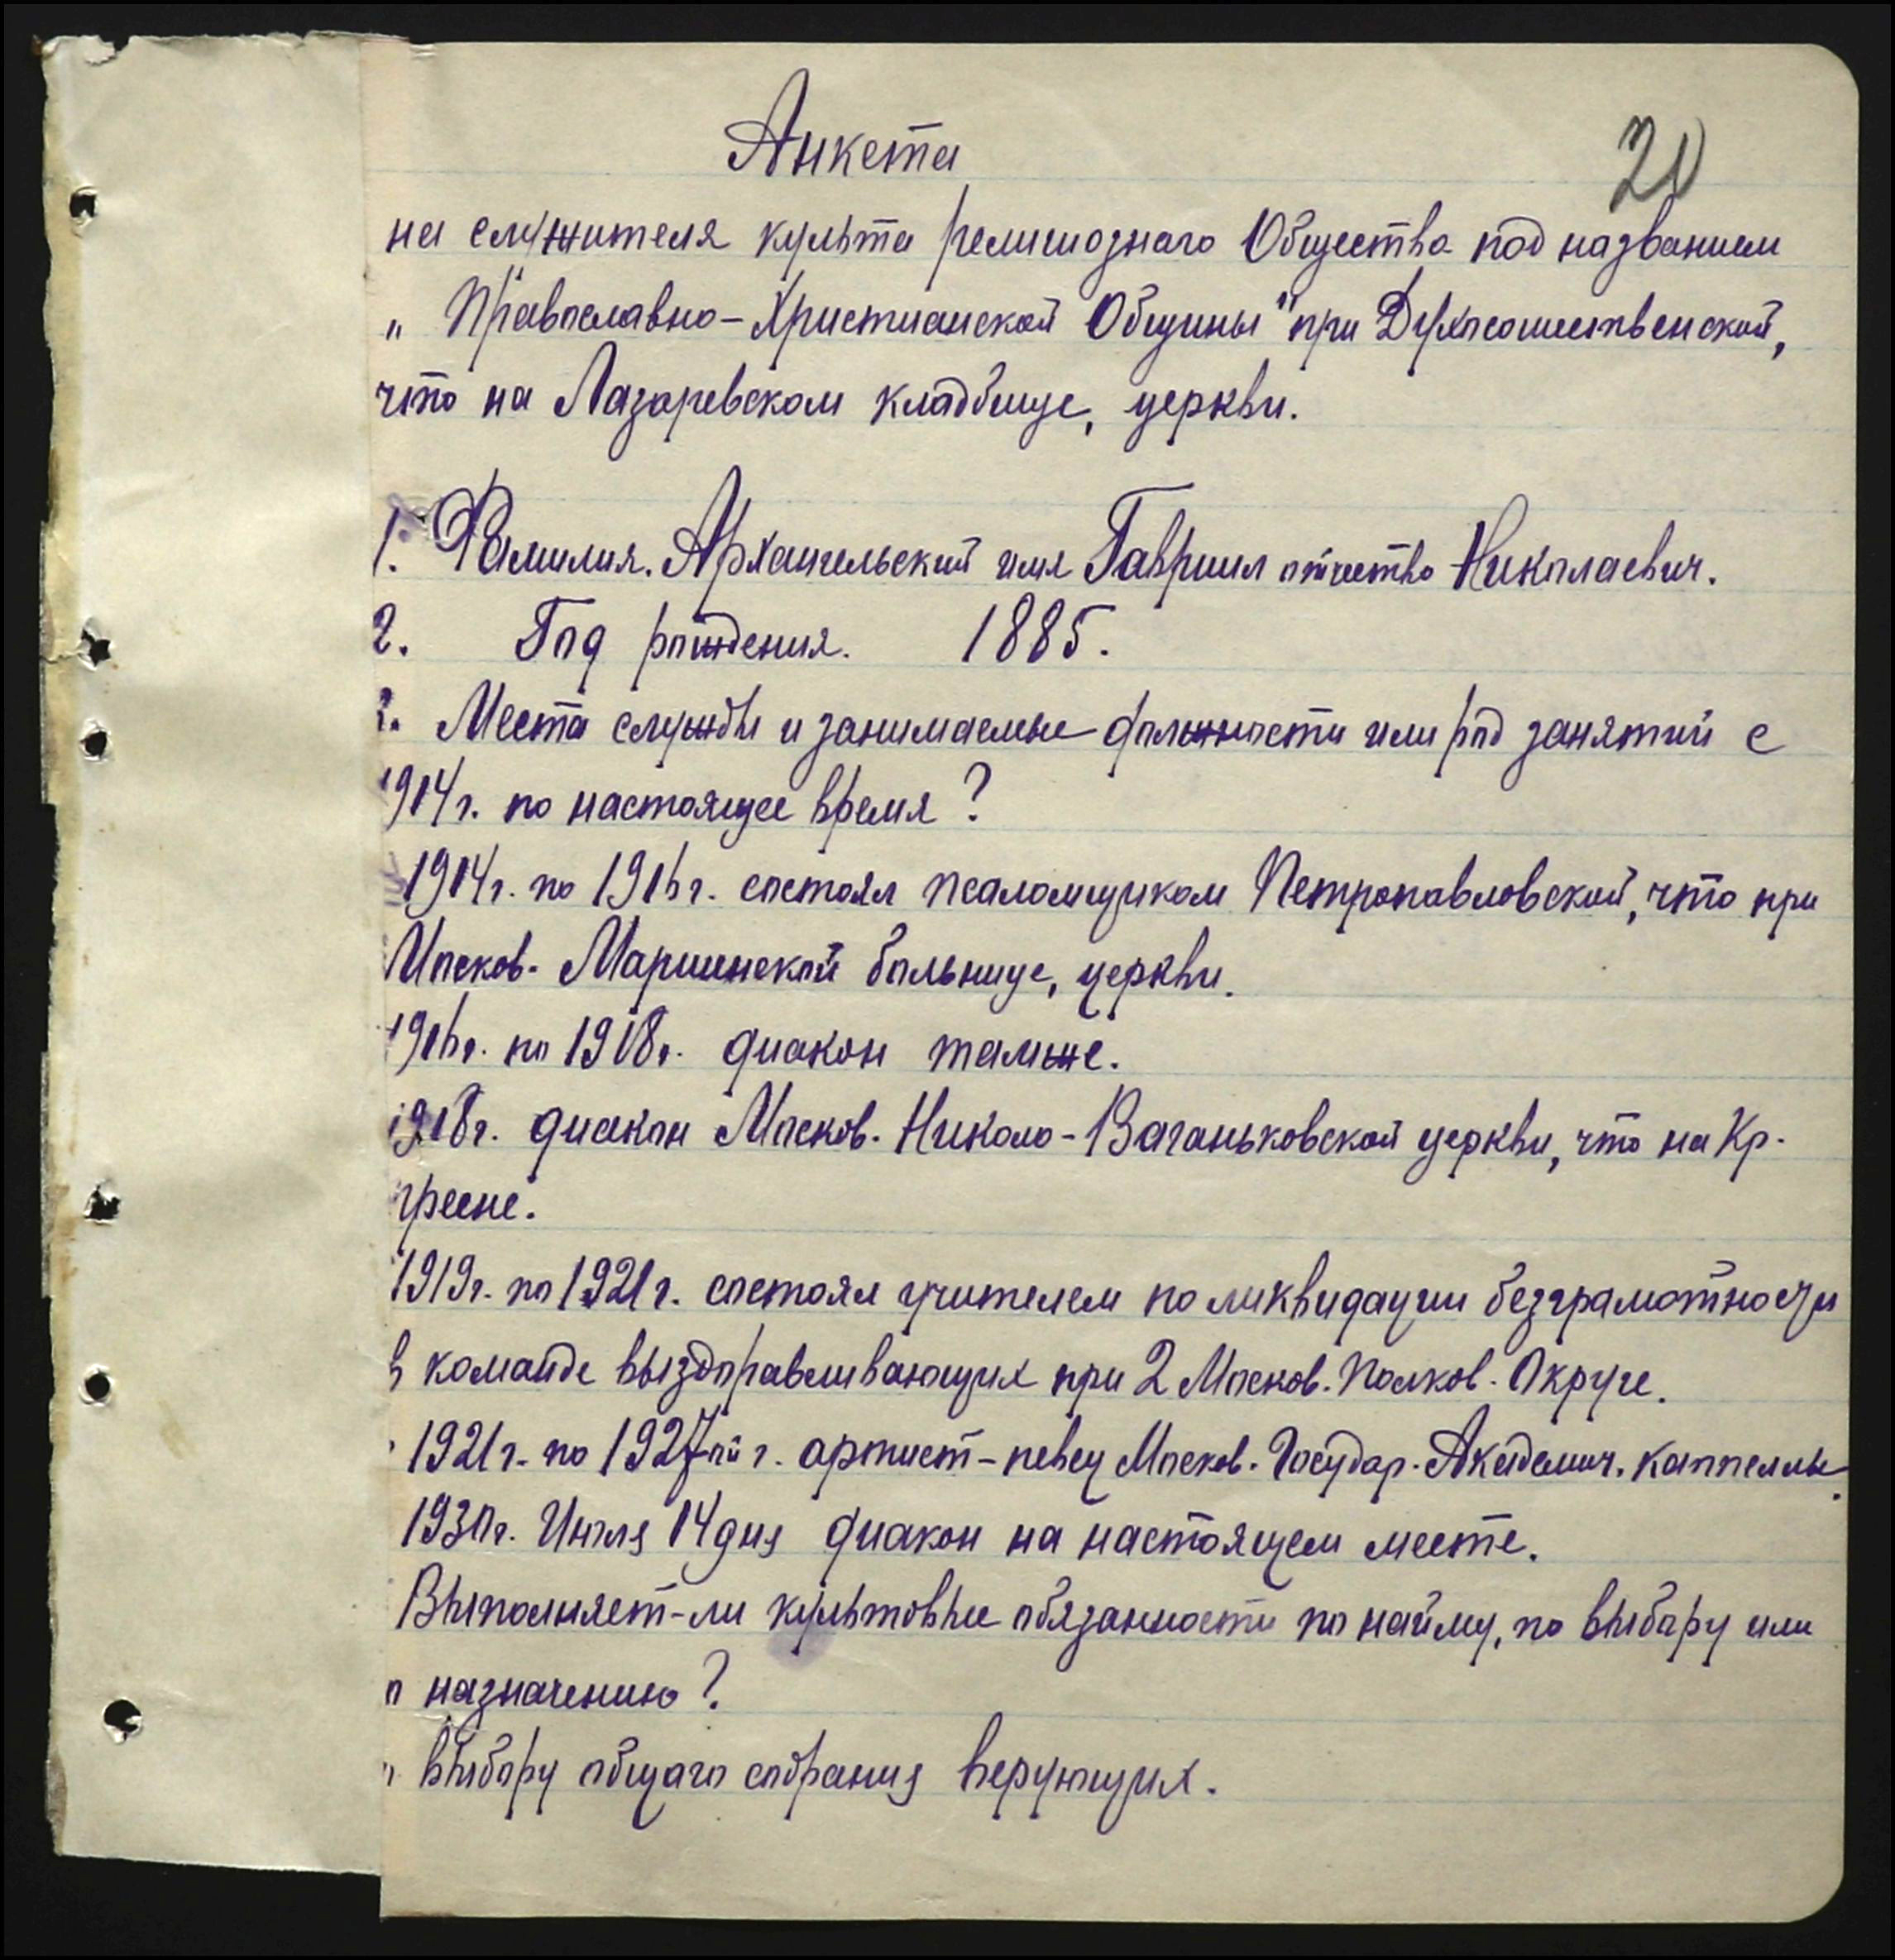 Анкета
20
на служителя культа религиознаго Общества под названием
„Православно-Христианской Общины" при Духосошественской,
что на Лазоревском кладбище, церкви.
1. Фамилия. Архангельский имя Гавриил отчество Николаевич.
2. Год рождения. 1885.
3. Места службы и занимаемые должности или род занятий с
1914г. по настоящее время?
1914г. по 1916г. состоял псаломщиком Петропавловской, что при
Москов. Мариинской больнице, церкви.
1916г. по 1918г. диакон тамже.
1918г. диакон Москов. Николо-Ваганьковской церкви, что на Кр.
Пресне.
1919г. по 1921г. состоял учителем по ликвидации безграмотности
в команде выздоравливающих при 2 Москов. Полков. Округе.
1921г. по 1927ой г. артист-певец Москов. Государ. Академич. Каппеллы.
1930г. Июля 14 дня диакон на настоящем месте.
Выполняет-ли культовые обязанности по найму, по выбору или
по назначению?
По выбору общаго собрания верующих.